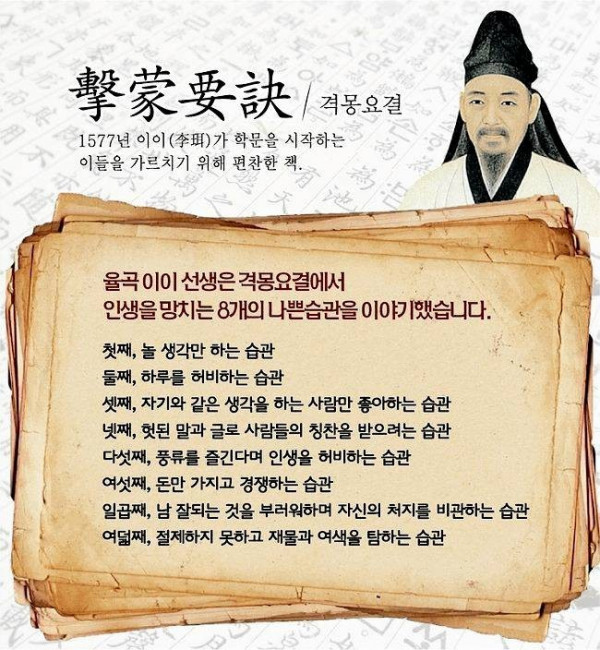 擊蒙要訣/격몽요결
1577년 이이(李珥)가 학문을 시작하는
이들을 가르치기 위해 편찬한 책.
율곡 이이 선생은 격몽요결에서
인생을 망치는 8개의 나쁜습관을 이야기했습니다.
첫째, 놀 생각만 하는 습관
둘째, 하루를 허비하는 습관
셋째, 자기와 같은 생각을 하는 사람만 좋아하는 습관
넷째, 헛된 말과 글로 사람들의 칭찬을 받으려는 습관
다섯째, 풍류를 즐긴다며 인생을 허비하는 습관
여섯째, 돈만 가지고 경쟁하는 습관
일곱째, 남 잘되는 것을 부러워하며 자신의 처지를 비관하는 습관
여덟째, 절제하지 못하고 재물과 여색을 탐하는 습관